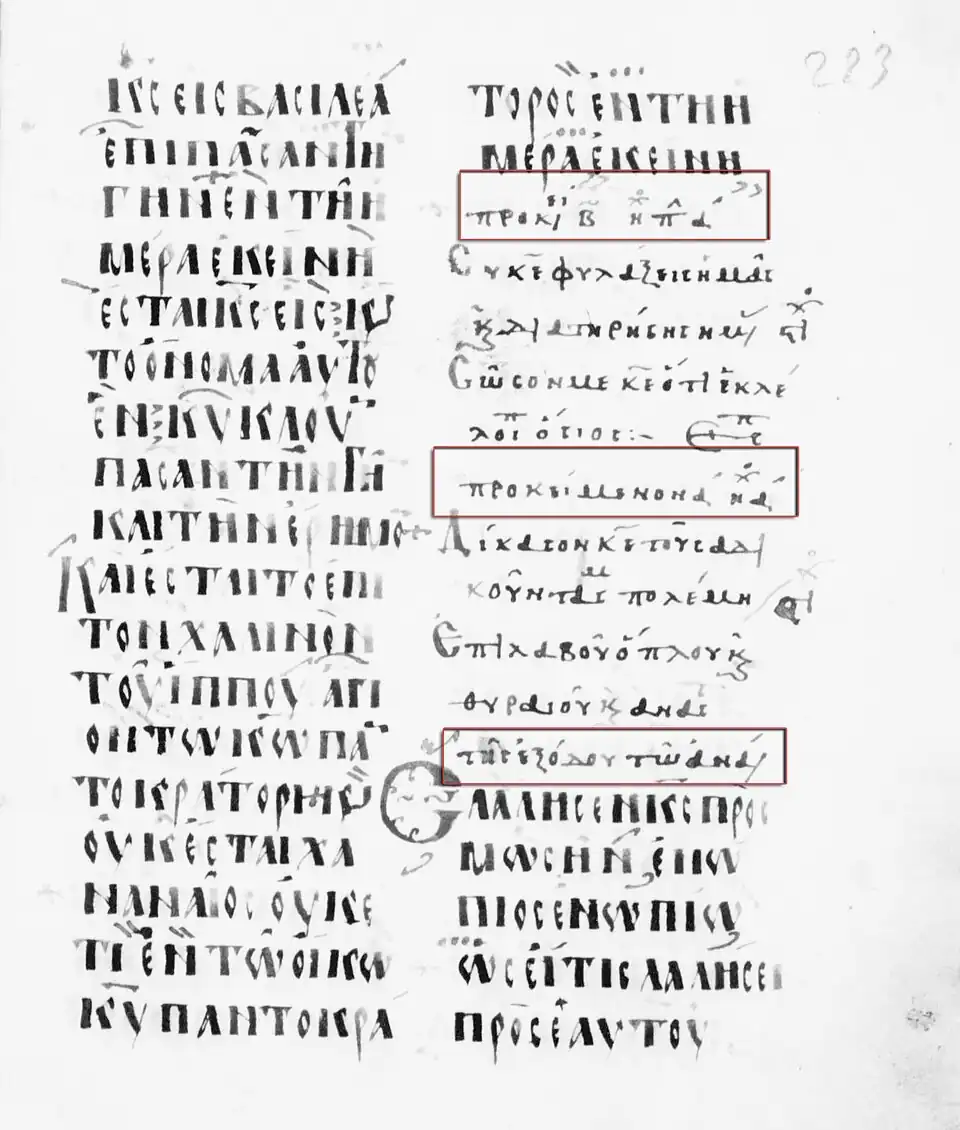 223
ΚΣ ΕΙΣ ΒΑΣΙΛΕΑ
ΕΠΙ ΠΑΣΑΝ ΤΗ
ΓΗΝ ΕΝ ΤΗ
ΜΕΡΑ ΕΚΕΙΝΗ
ΕΣΤΑΙ ΚΣ ΕΙΣ Κ
ΤΟ ΟΝΟΜΑ ΑΥΤΟΥ
ΕΝ ΚΥΚΛΟΥ
ΠΑΣΑΝ ΤΗΝ ΓΗ
ΚΑΙ ΤΗΝ ΕΡΗΜΟ
ΚΑΙ ΕΣΤΑΙ ΤΟ ΕΠΙ
ΤΟΝ ΧΑΛΙΝΟΝ
ΤΟΥ ΙΠΠΟΥ ΑΓΙ
ΟΝ ΤΩ ΚΩ ΠΑ
ΤΟΚΡΑΤΟΡΗ Κ
ΟΥΚ ΕΣΤΑΙ ΧΑ
ΝΑΝΑΙΟΣ ΟΥΚΕ
ΤΙ ΕΝ ΤΩ ΟΙΚΩ
ΚΥ ΠΑΝΤΟΚΡΑ
ΤΟΡΟΣ ΕΝ ΤΗ Η
ΜΕΡΑ ΕΚΕΙΝΗ
προκ/ β η π α
Συ κε φυλαξεις ημας
κ διατηρησης ημ/
Σωσον με κε οτι εκλε
λοιπ οσιος:~
προκειμενον α η α
Δικασον κε τους αδι
κουντας με πολεμη
Επιλαβου οπλου κ
θυραιου κ ανας
της εξοδου το ανα/
ΕΛΑΛΗΣΕΝ ΚΣ ΠΡΟΣ
ΜΩΣΗΝ ΕΝΩ
ΠΙΟΣ ΕΝΩΠΙΩ
ΩΣ ΕΙ ΤΙΣ ΛΑΛΗΣΕΙ
ΠΡΟΣ ΕΑΥΤΟΥ